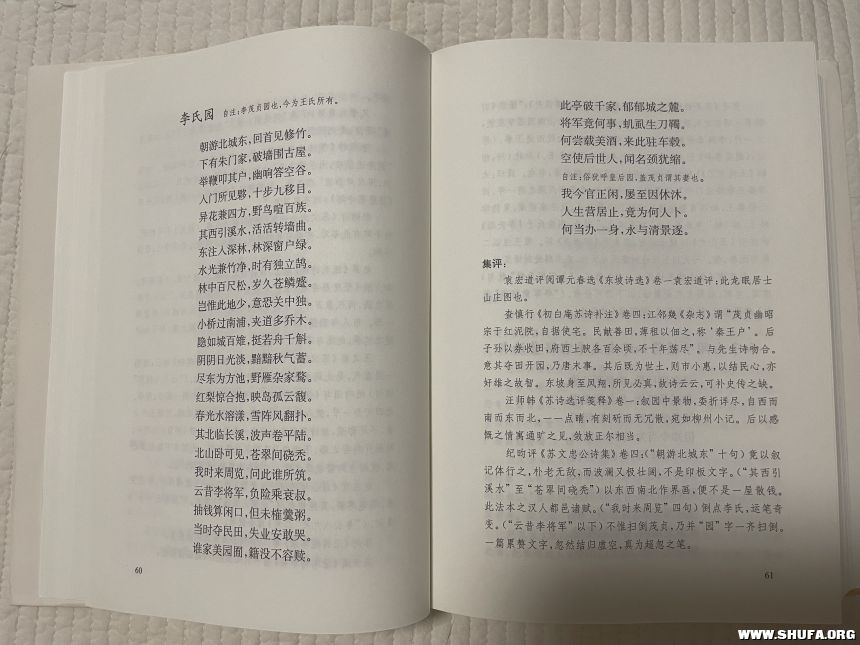 李氏园 自注:李茂贞园也,今为王氏所有。
朝游北城东,回首见修竹。
下有朱门家,破墙围古屋。
举鞭叩其户,幽响答空谷。
入门所见夥,十步九移目。
异花兼四方,野鸟喧百族。
其西引溪水,活活转墙曲。
东注入深林,林深窗户绿。
水光兼竹净,时有独立鹄。
林中百尺松,岁久苍鳞蹙。
岂惟此地少,意恐关中独。
小桥过南浦,夹道多乔木。
隐如城百雉,挺若舟千斛。
阴阴日光淡,黯黯秋气蓄。
尽东为方池,野雁杂家鹜。
红梨惊合抱,映岛孤云馥。
春光水溶漾,雪阵风翻扑。
其北临长溪,波声卷平陆。
北山卧可见,苍翠间硗秃。
我时来周览,问此谁所筑。
云昔李将军,负险乘衰叔。
抽钱算闲口,但未榷羹粥。
当时夺民田,失业安敢哭。
谁家美园囿,籍没不容赎。
60
此亭破千家,郁郁城之麓。
将军竟何事,虮虱生刀韣。
何尝载美酒,来此驻车毂。
空使后世人,闻名颈犹缩。
自注:俗犹呼皇后园,盖茂贞谓其妻也。
我今官正闲,屡至因休沐。
人生营居止,竟为何人卜。
何当办一身,永与清景逐。
集评:
袁宏道评阅谭元春选《东坡诗选》卷一袁宏道评:此龙眠居士
山庄图也。
查慎行《初白庵苏诗补注》卷四:江邻幾《杂志》谓“茂贞幽昭
宗于红泥院,自据使宅。民献善田,薄租以佃之,称‘秦王户’。后
子孙以券收田,府西土腴各百余顷,不十年荡尽”。与先生诗吻合。
意其夺田开园,乃唐末事。其后既为世土,则市小惠,以结民心,亦
奸雄之故智。东坡身至凤翔,所见必真,故诗云云,可补史传之缺。
汪师韩《苏诗选评笺释》卷一:叙园中景物,委折详尽,自西而
南而东而北,一一点睛,有刻斫而无冗散,宛如柳州小记。后以感
慨之情寓通旷之见,敛放正尔相当。
纪昀评《苏文忠公诗集》卷四:(“朝游北城东”十句)竟以叙
记体行之,朴老无敌,而波澜又极壮阔,不是印板文字。(“其西引
溪水”至“苍翠间硗秃”)以东西南北作界画,便不是一屋散钱。
此法本之汉人都邑诸赋。(“我时来周览”四句)倒点李氏,运笔奇
变。(“云昔李将军”以下)不惟扫倒茂贞,乃并“园”字一齐扫倒。
一篇累赘文字,忽然结归虚空,真为超忽之笔。
61
WWW.SHUFA.ORG